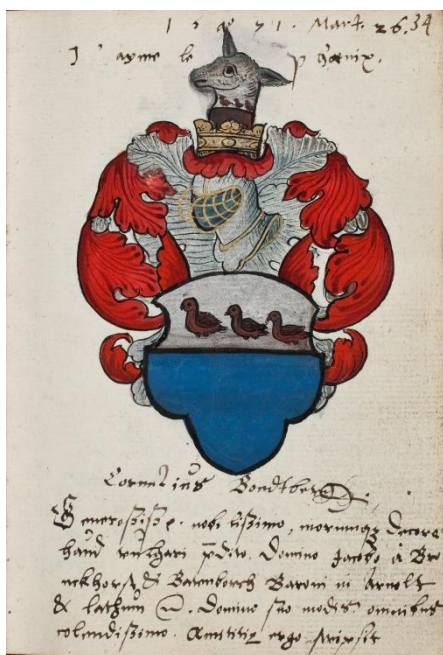 1 5 7 1 . Mart. 26. 34
J' ayme le phœnix.
Cornelius
Generosiss. nobilissimo, morumq3 decore
haud vulgari pdito. Domino Jacobo à Bro
nckhorst & Batenborch Baroni in Arnolt
& Lathum &. Domino suo modis omnibus
colendissimo. Amicitiæ ergo scripsit